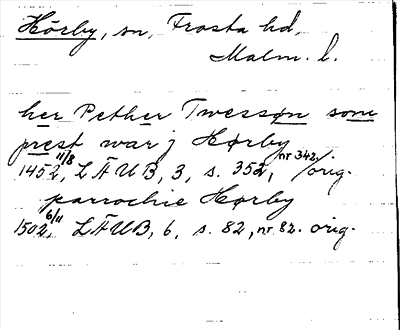 Hörby, sn, Frosta hd,
Malm. l.
her Pether Twessøn som
prest war j Hørby
1452 11/8, LÄUB, 3, s. 352, nr 342, orig.
parrochie Hørby
1502 6/11, LÄUB, 6, s. 82, nr. 82. orig.